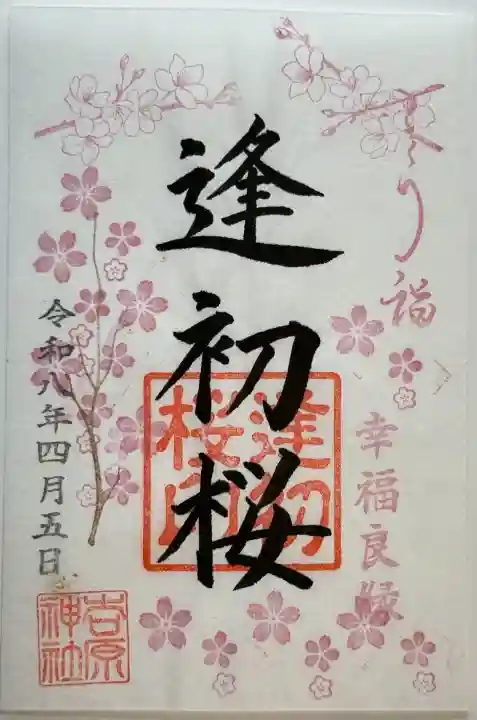 さくら福
幸福良縁
逢初桜
逢初
桜印
令和八年四月五日
吉原
神社